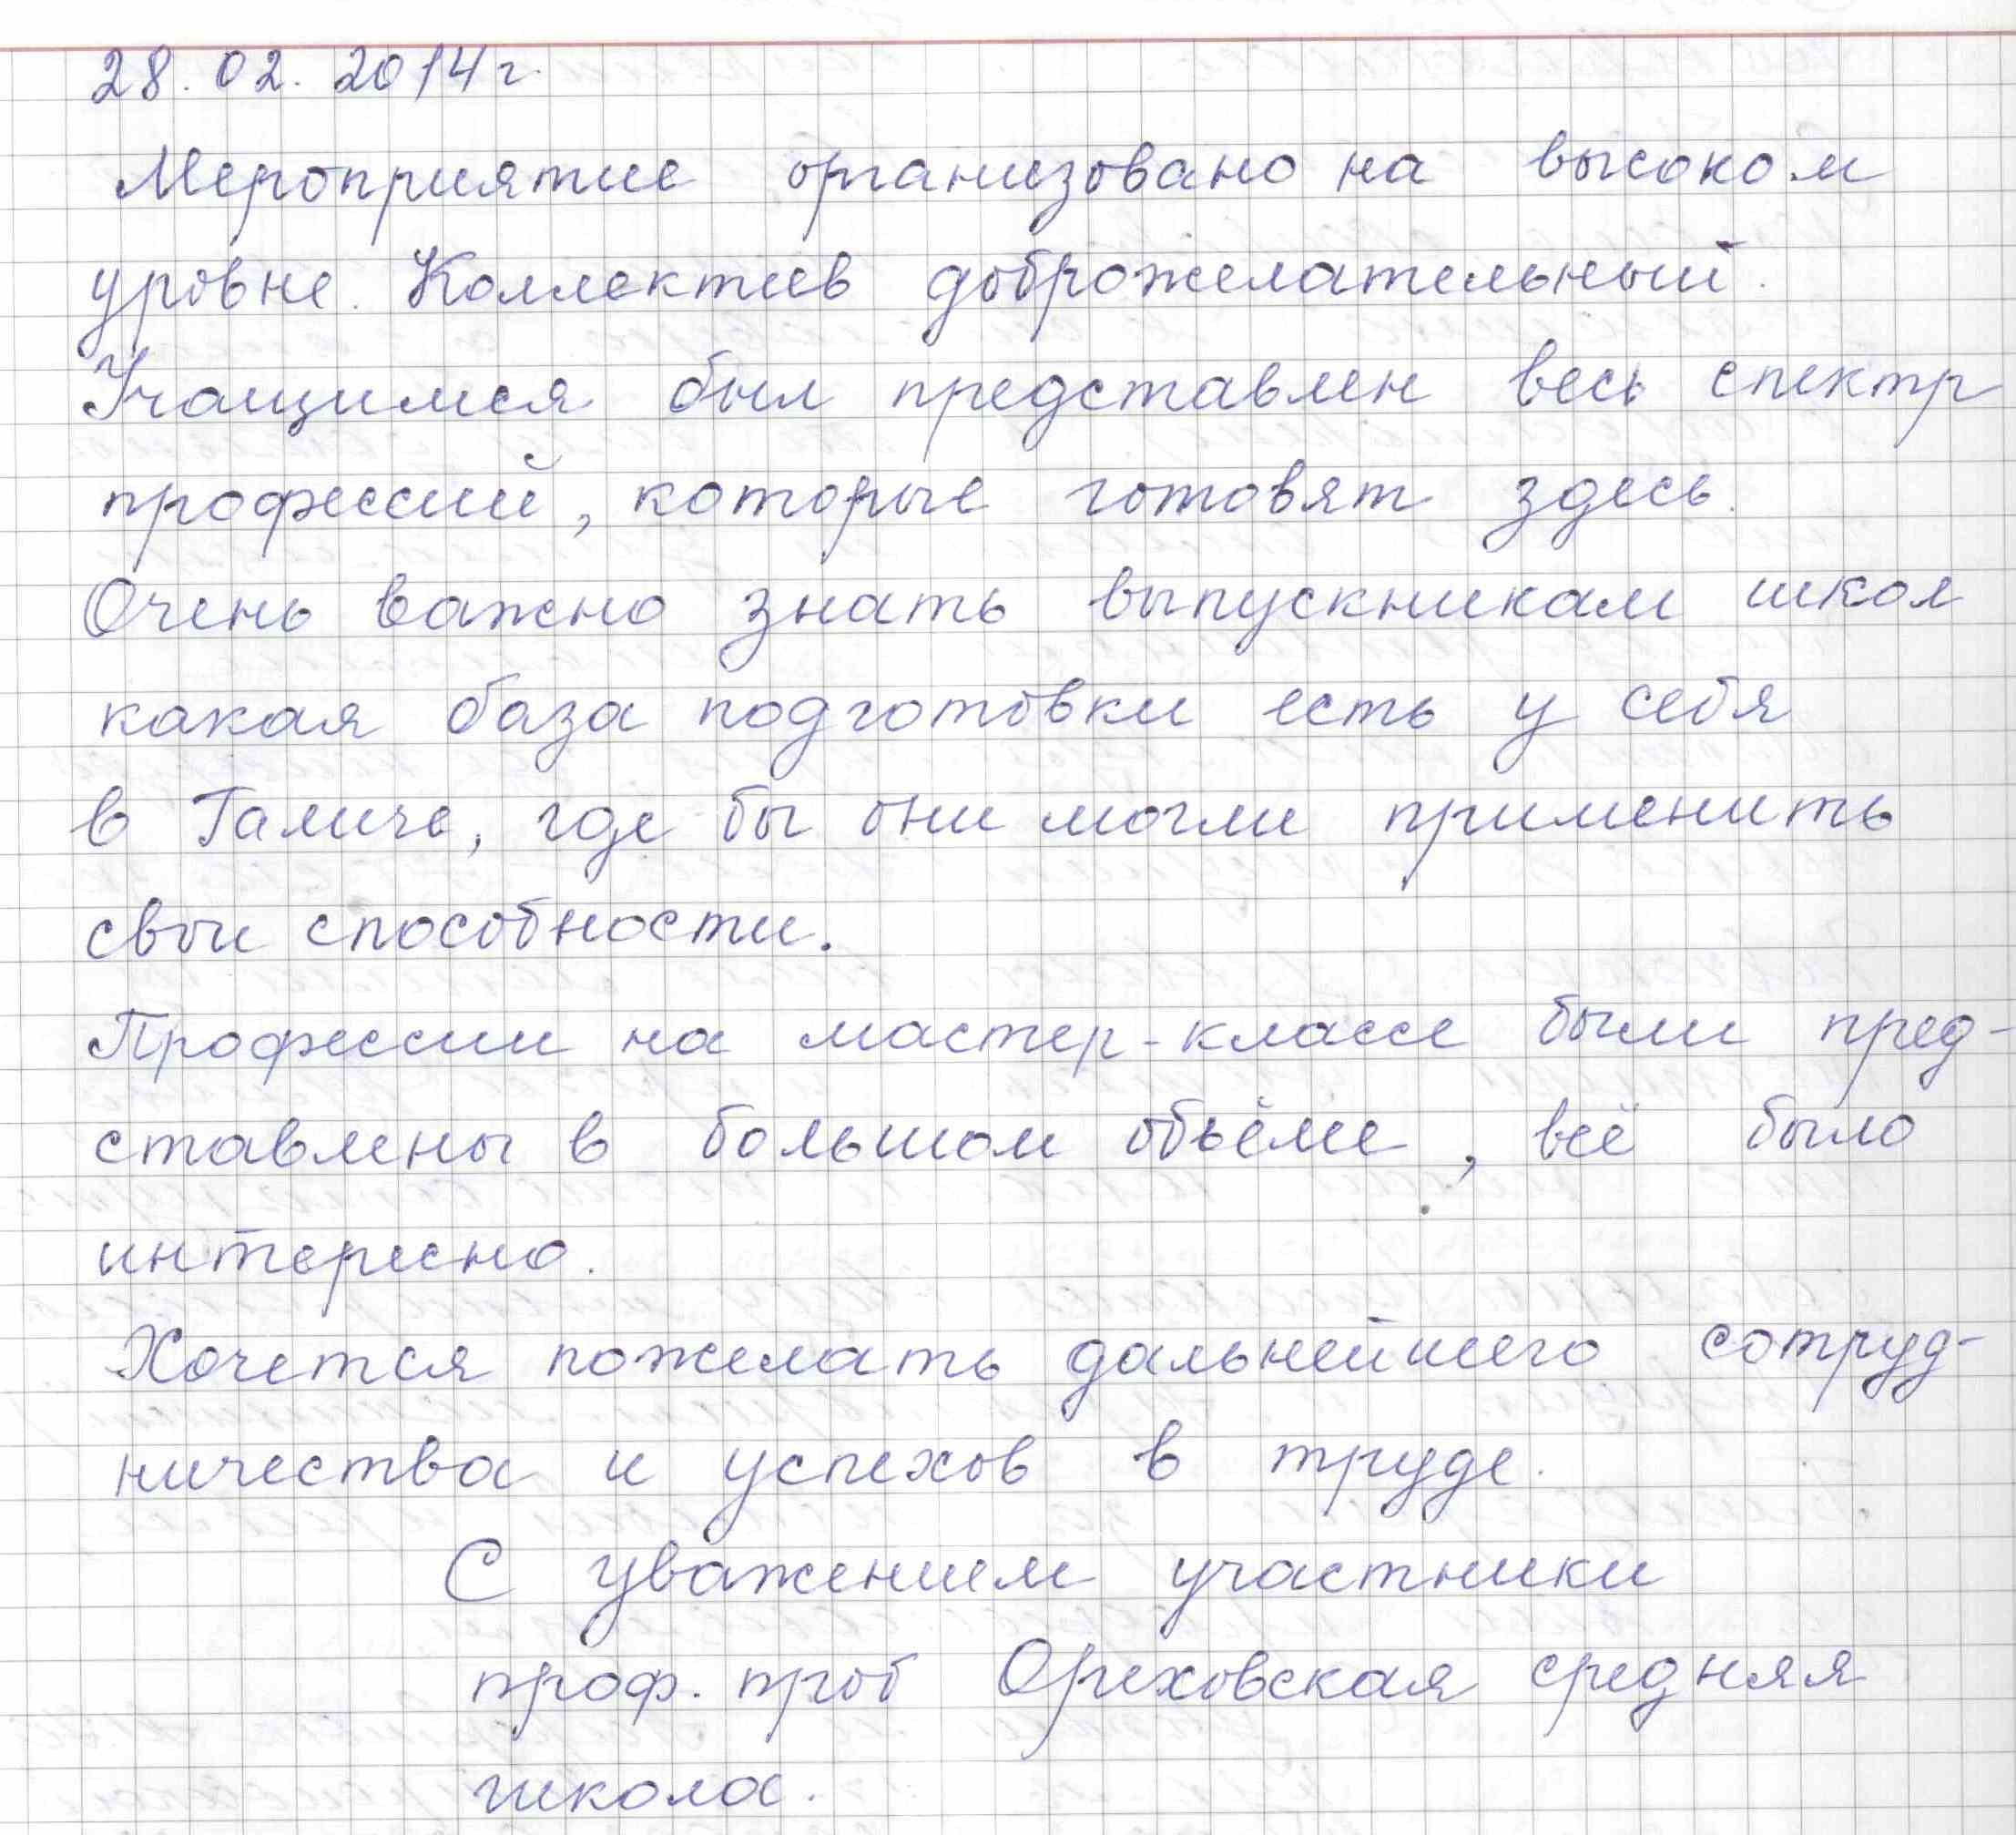 28.02.2014 г.
Мероприятие организовано на высоком
уровне. Коллектив доброжелательный.
Учащимся был представлен весь спектр
профессий, которые готовят здесь.
Очень важно знать выпускникам школ
какая база подготовки есть у себя
в Галиче, где бы они могли применить
свои способности.
Профессии на мастер-классе были пред-
ставлены в большом объёме, всё было
интересно.
Хочется пожелать дальнейшего сотруд-
ничества и успехов в труде.
С уважением участники
проф. проб Ореховская средняя
школа.